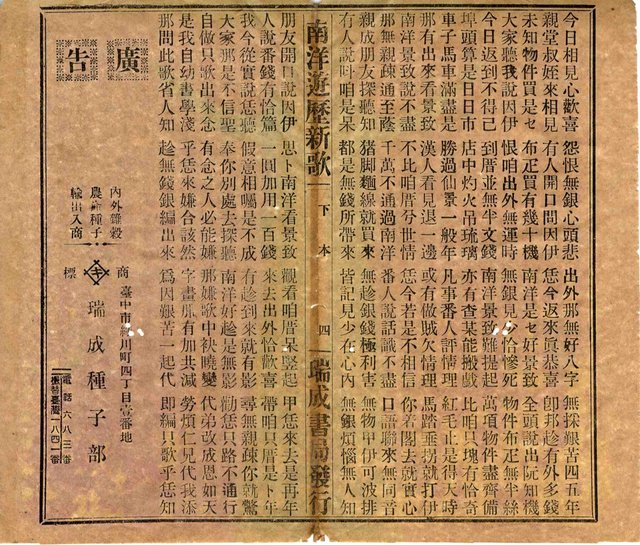 今日相見心歡喜 怨恨無銀心頭悲 出外那無好八字 無採艱苦四五年
親堂叔姪來相見 有人開口問因伊 恁今返來眞恭喜 卽邦趁有外多錢
未知物件買是乜 布疋買有幾十機 南洋是乜好景致 全頭說出阮知機
大家聽我說因伊 恨咱出外無運時 無銀見少恰慘死 物件布疋無半絲
今日返到不得已 到厝並無半文錢 南洋景致難提起 萬項物件盡齊備
埠頭算是日日市 店中灼火吊琉璃 亦有查某能搬戲 比咱只塊有恰奇
車子馬車滿盡是 勝過仙景一般年 凡事番人評情理 紅毛止是得天時
那有出來看景致 漢人看見退一邊 或有做賊欠情理 馬踏歪拐就打伊
南洋景致說不盡 不比咱厝兮世情 恁今若是不相信 你若閣去就實心
那無親疎通至蔭 千萬不通過南洋 番人說話識不盡 口語聯來無同音
親成朋友探聽知 猪脚麵線就買來 無趁銀錢極利害 無物甲伊可波排
有人說叫咱是呆 都是無錢所帶來 皆記見少在心內 無銀煩惱無人知
南洋遊歷新歌 下本 四 瑞成書局發行
朋友開口說因伊 思卜南洋看景致 觀看咱厝呆竪起 甲恁來去是再年
人說番錢有恰篇 一圓加用一百錢 來去出外恰歡喜 帶咱只厝是卜年
我今從實說恁聽 假意相囑是不成 有趁到來就有影 尋無親疎你就驚
大家那是不信聖 奉你別處去探聽 南洋好趁是無影 勸恁只路不通行
自做只歌出來念 有念之人必能嫌 那嫌歌中袂曉變 代弟改成恩如天
是我自幼書學淺 乎恁來嫌合該然 字畫有加共減 勞煩仁兄代我添
那問此歌省人知 趁無錢銀編出來 爲因艱苦一起代 卽編只歌乎恁知
廣告
內外雜穀
農產種子
輸出入商
商標
臺中市綠川町四丁目壹番地
瑞成種子部
電話六八三番
振替臺灣一八四一番